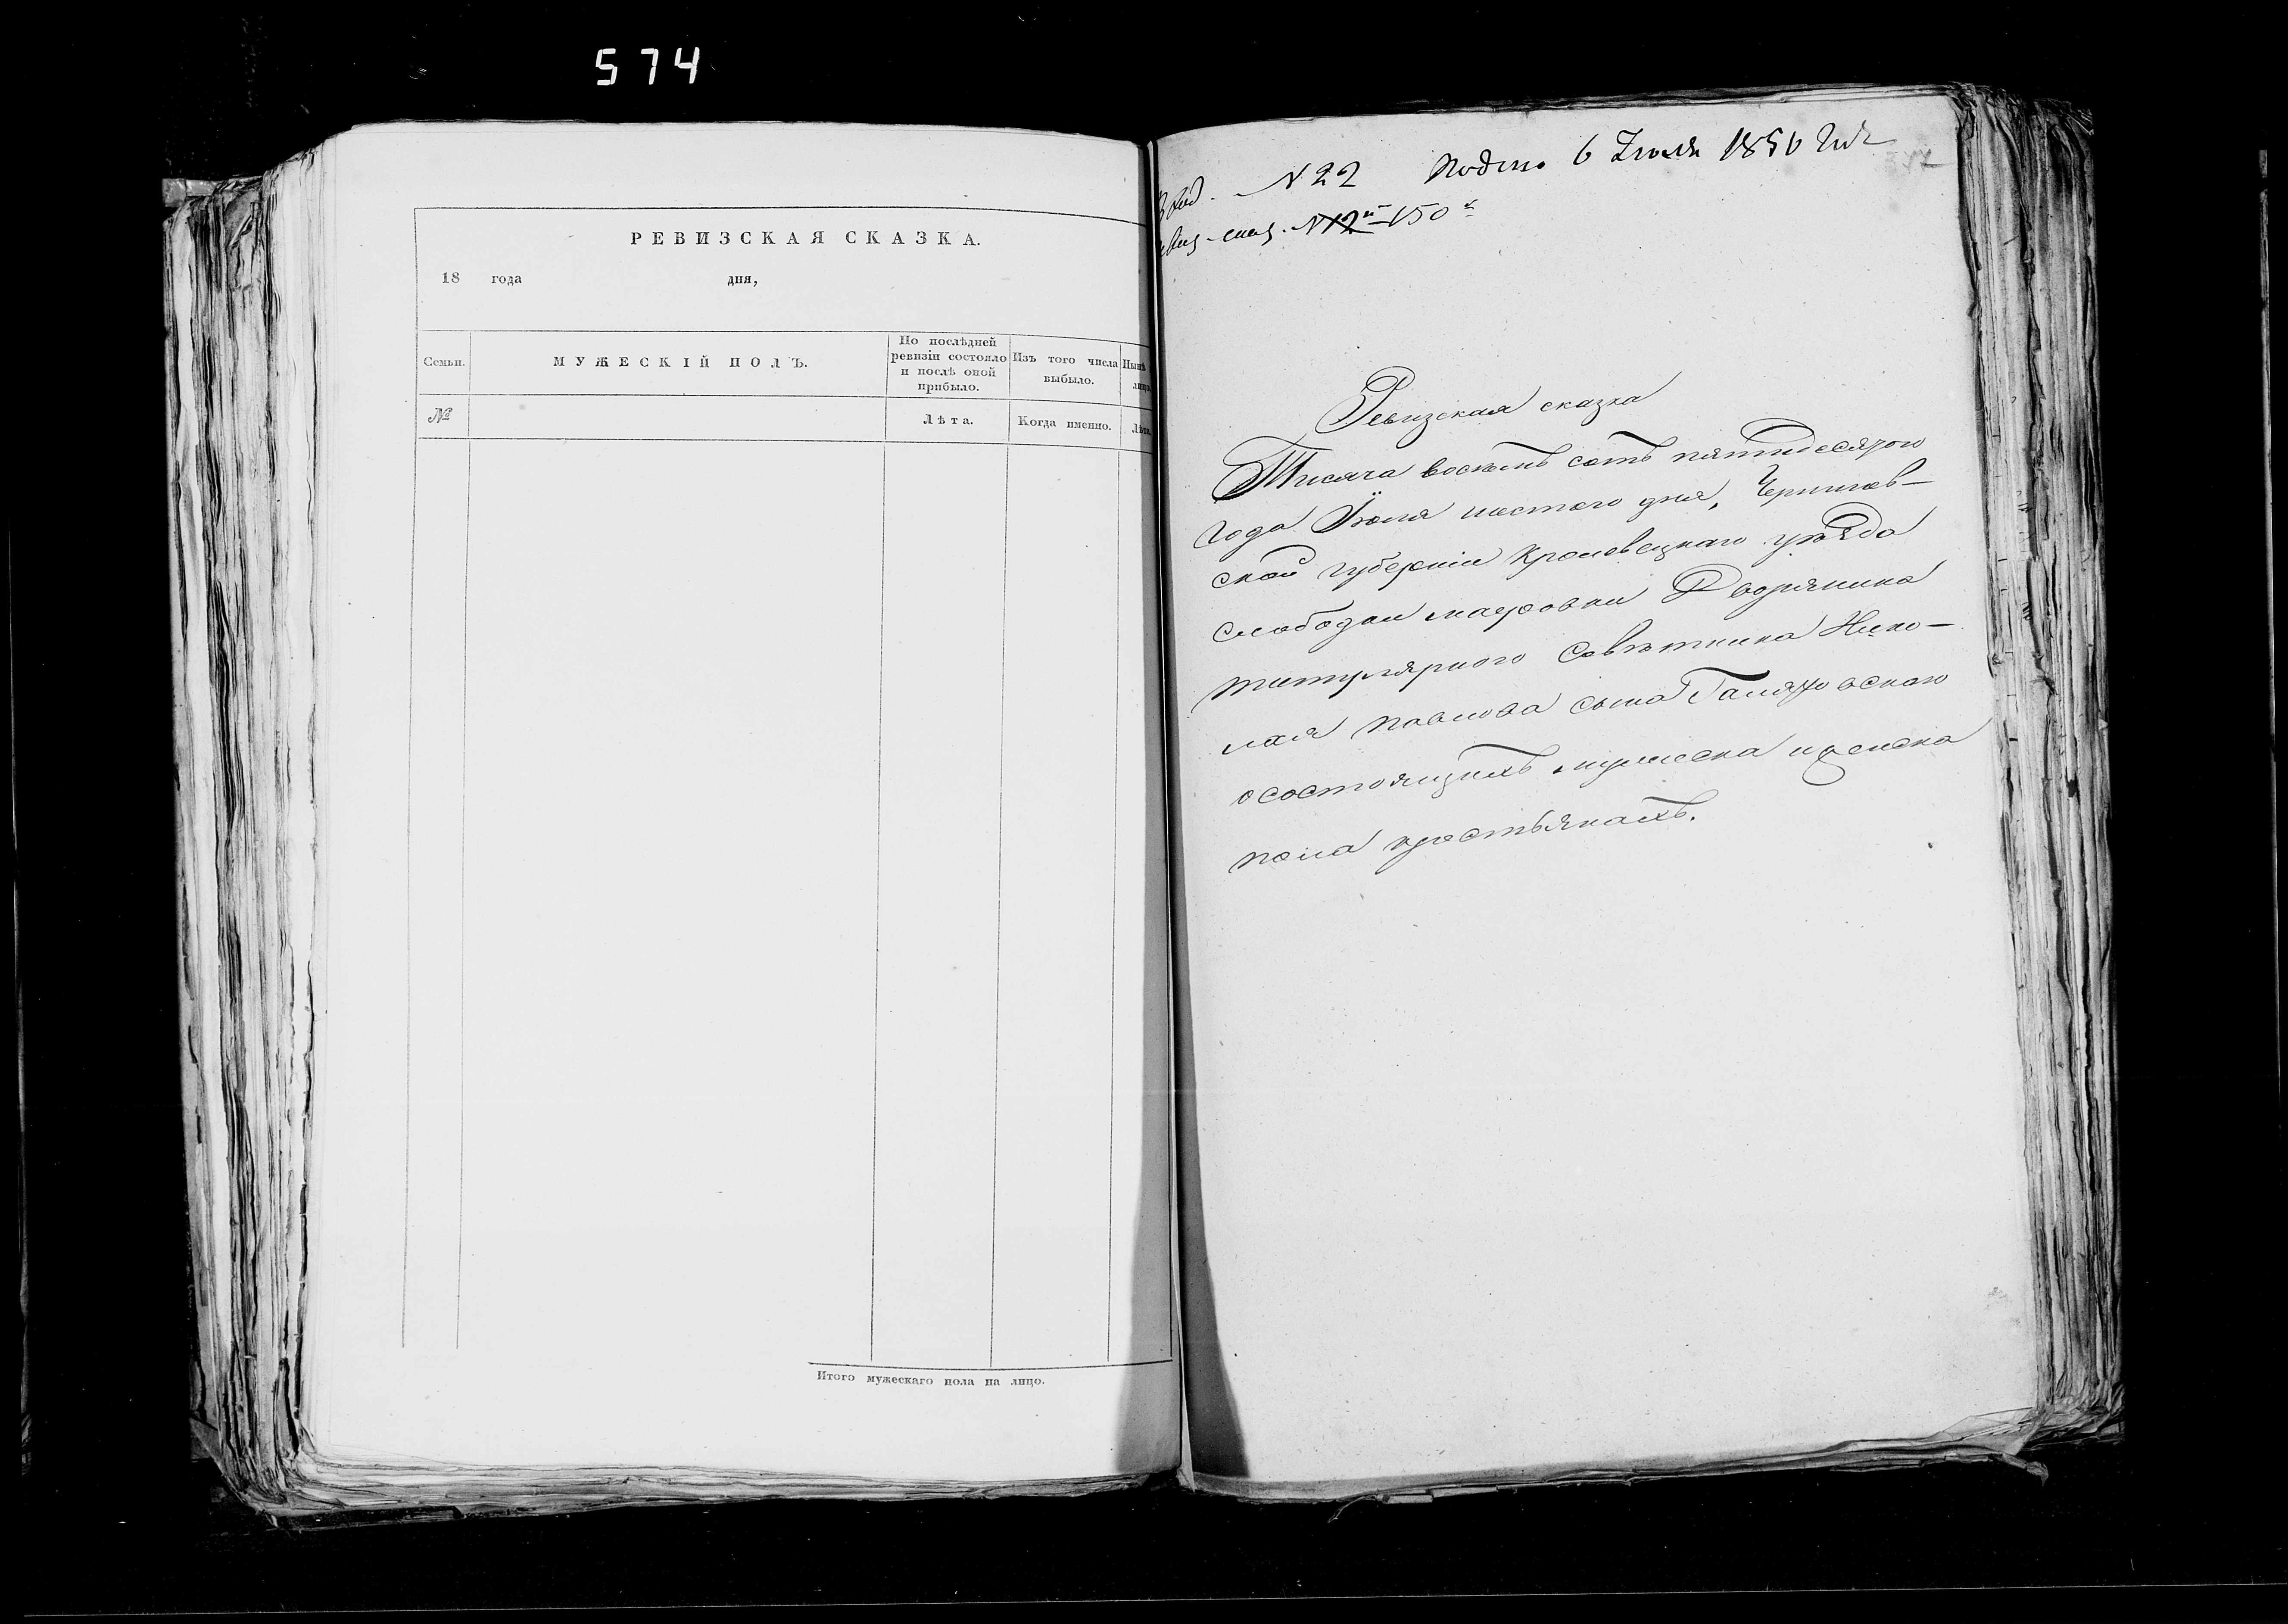 574
РЕВИЗСКАЯ СКАЗКА.
18 года дня,
Семьи.
МУЖЕСКІЙ ПОЛЪ.
По послѣдней
ревизіи состояло
и послѣ оной
прибыло.
Изъ того числа
выбыло.
№
Лѣта.
Когда именно.
Лѣта.
Итого мужескаго пола на лицо.
Вход. №22 Подано 6 Іюля 1850 Года
сказ. №12й 150я
Ревизская сказка
Тисяча восемь сотъ пятидесятого
года Іюля шестого дня, Чернигов-
ской губерніи Кролевецкаго уѣзда
слободки Дворянина
титулярного Совѣтника Нико-
лая Павлова сына Галяховскаго
о состоящихъ мужеска и женска
пола крестьянахъ.